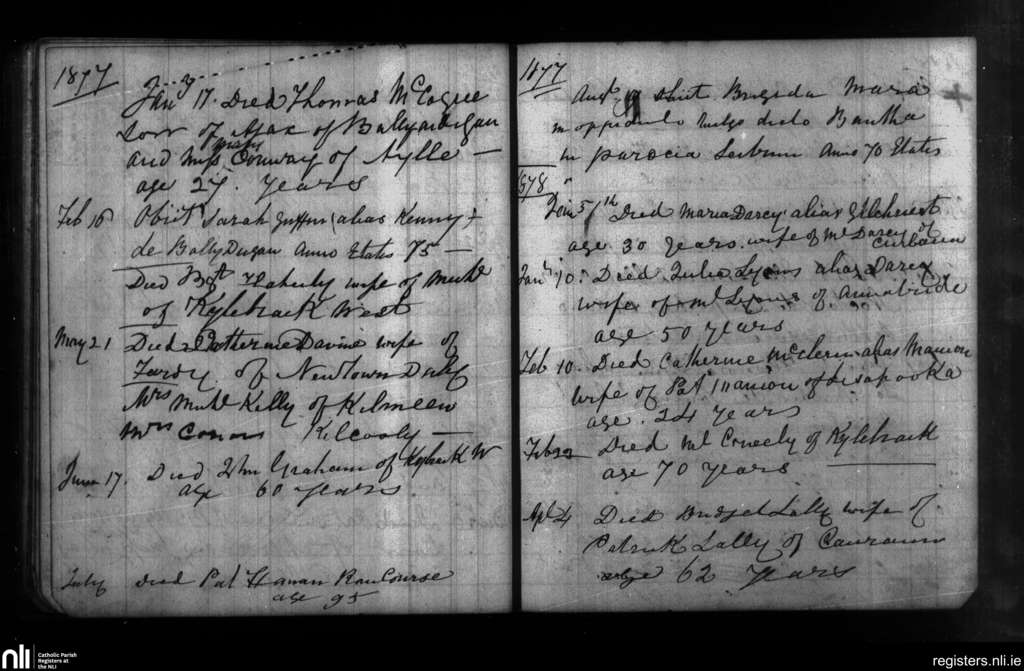 1877
Jany 17. Died Thomas McCogue
son of Max of Ballydugan
and Miss Conway of Aylle —
age 27. years
Feb 18 Obiit Sarah (alias Kenny)
de BallyDugan Anno Etatis 75 —
Died Bgt Flaherty wife of Michl
of Kylebrack West
May 21 Died Catherine Davine wife of
of Newtown Daly
Mrs Michl Kelly of Kilmeen
Mrs Kilcooly —
June 17. Died Wm Graham of Kylebrack W
age 60 years
July Died Pat Hanan RaiCourse
age 95
1877
Augt obiit Brigida Mara
in oppidulo vulgo dicto
in parocia Anno 70 Etatis
1878
Jan 5th Died Maria Darcy alias Gilchriest
age 30 years. wife of Ml Darcy of
Jany 10. Died Julia Lyons alias Darcy
wife of Ml Lyons of Annabride
age 50 years
Feb 10. Died Catherine alias Manion
wife of Pat Manion of Lisapooka
age. 24 years
Feb 22 Died Ml Coneely of Kylebrack
age 70 years
Apl 4 Died Bridget Lally wife of
Patrick Lally of
age 62 years
nli
Catholic Parish
Registers at
the NLI
registers.nli.ie